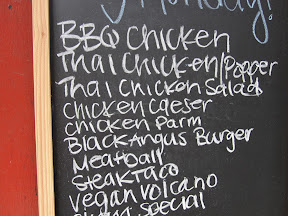 Monday!
BBQ Chicken
Thai Chicken/Pepper
Thai Chicken Salad
Chicken Caeser
Chicken Parm
Black Angus Burger
Meatball
Steak Taco
Vegan Volcano
Special